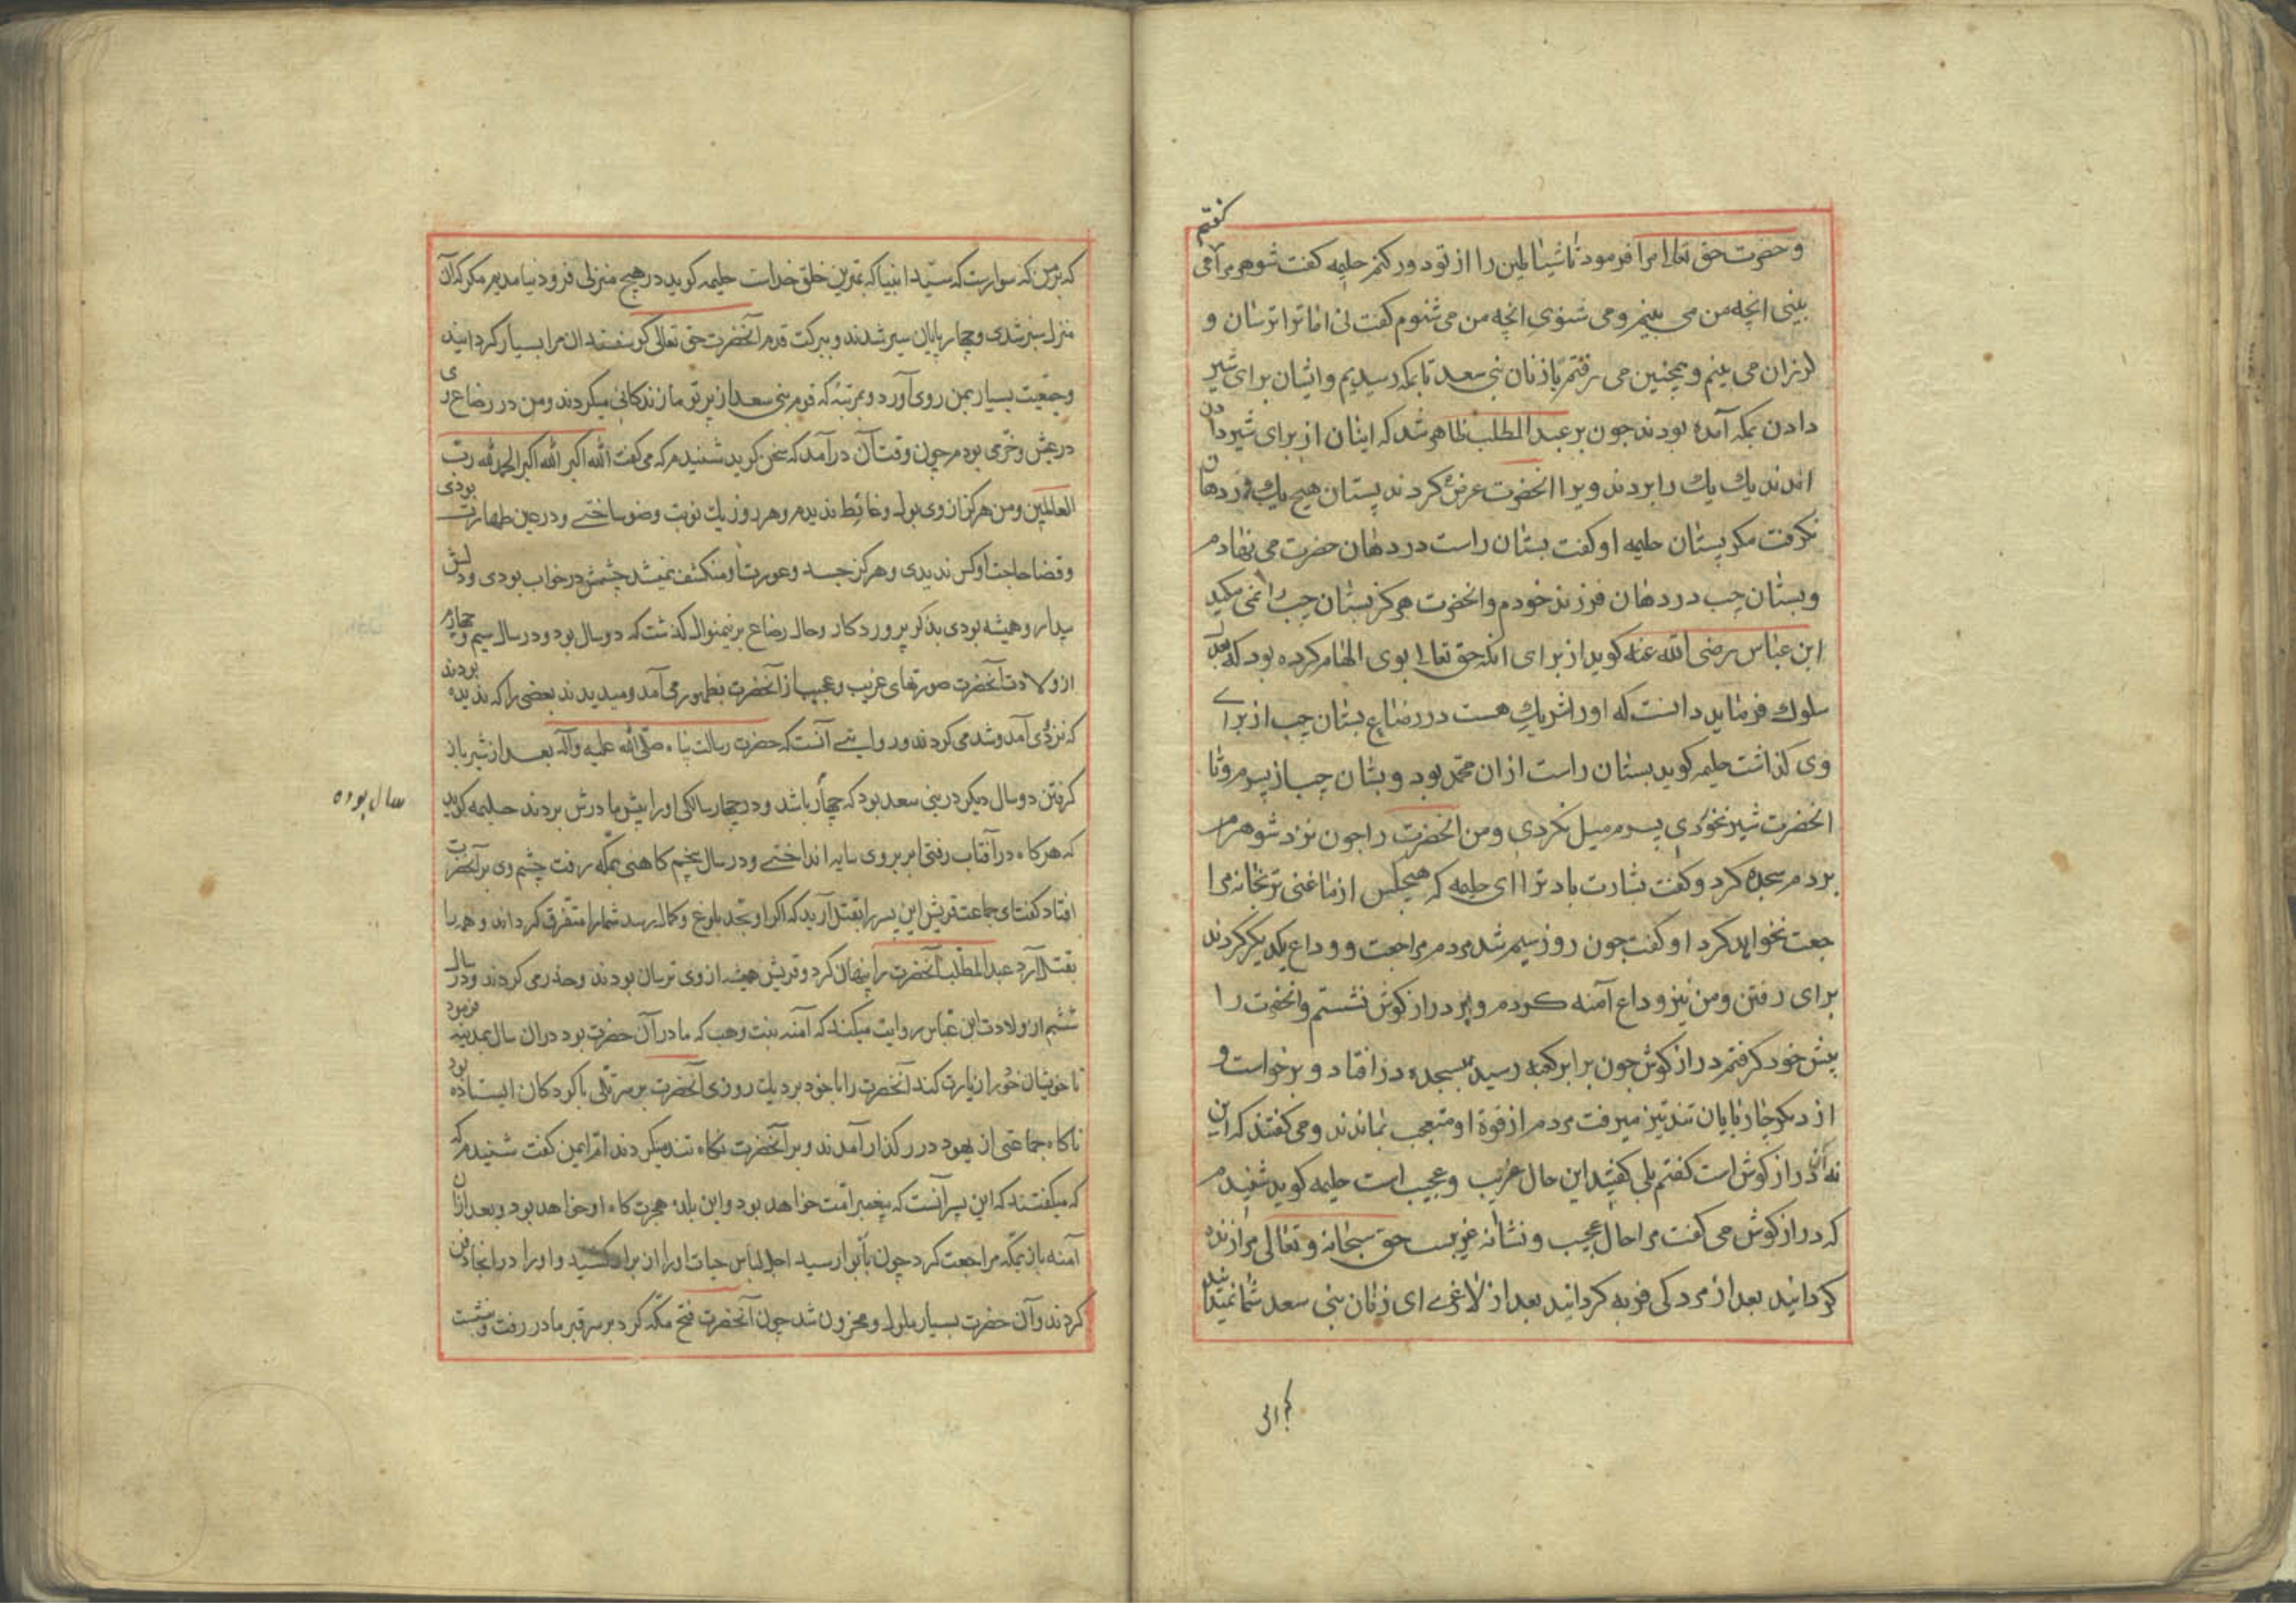 و حضرت حق تعالی مرا فرمود تا شیاطین را از تو دور کنم حلیمه کفت شوهر مرا کفتم می
بینی انچه من می بینم و می شنوی انچه من می شنوم کفت نی اما ترا ترسان و
لرزان می بینم و همچنین می رفتم با زنان بنی سعد تا بمکه رسیدیم و ایشان برای شیر
دادن بمکه آمده بودند جون بر عبد المطلب ظاهر شد که ایشان از برای شیر دادن
اند یک یک را بردند و برا انحضرت عرض کردند پستان هیچ یک در دهان
نکرفت مکر پستان حلیمه او کفت بستان راست در دهان حضرت می نهادم
و بستان جب در دهان فرزند خودم و انحضرت هرکز بستان جب را نمی مکید
ابن عباس رضی الله عنه کوید از برای انکه حق تعالی بوی الهام کرده بود که بعدل
سلوک فرماید دانست که او را شریک هست در رضاع بستان جب از برای
وی کذاشت حلیمه کوید بستان راست از ان محمد بود و بستان جب از پسرم و تا
انحضرت شیر نخوردی پسرم میل نکردی و من انحضرت را جون نزد شوهرم
بردم سجده کرد و کفت بشارت باد ترا ای حلیمه که هیجکس از ما غنی تر بخانه مرا
جعت نخواهد کرد او کفت جون روز سیم شد مردم مراجعت و وداع یکدیکر کردند
برای رفتن و من نیز وداع آمنه کردم و بر دراز کوش نشستم و انحضرت را
بیش خود کرفتم دراز کوش جون برابر کعبه رسید بسجده در افتاد و برخواست و
از دیکر جاربایان تند تیز میرفت مردم از قوة او متعجب بماندند و می کفتند که این
نه آن دراز کوش است کفتم بلی کفتند این حال غریب و عجیب است حلیمه کوید شنیدم
که دراز کوش می کفت مرا حال عجیب و نشانه غریبست حق سبحانه و تعالی مرا زنده
کردانید بعد از مردکی فربه کردانید بعد از لاغری ای زنان بنی سعد شما نمیدانید
که بر من که سوارست که سید انبیا که بهترین خلق خداست حلیمه کوید در هیچ منزلی فرود نیامدیم مکر که آن
منزل سبز شدی و چهارپایان سیر شدند و ببرکت قدم آنحضرت حق تعالی کوسفندان مرا بسیار کردانید
و جمعیت بسیار بمن روی آورد و بمرتبهٔ که قوم بنی سعد از پرتو ما زندکانی میکردند و من در رضاع وی
در عیش و خرمی بودم چون وقت آن درآمد که سخن کوید شنیدم که می کفت الله اکبر الله اکبر الحمد لله رب
العالمین و من هرکز از وی بول و غائط ندیدم و هر روز یک نوبت وضو ساختی و در عین طهارت بودی
و قضا حاجت او کس ندیدی و هرکز جسد و عورت او منکشف نمیشد چشمش در خواب بودی و دلش
بیدار و همیشه بودی بذکر پروردکار و حال رضاع برینمنوال کذشت که دو سال بود و در سال سیم و چهارم
از ولادت آنحضرت صورتهای غریب و عجیب از آنحضرت بظهور می آمد و میدیدند بعضی را که ندیده بودند
که نزد وی آمد و شد می کردند و روایتی آنست که حضرت رسالت پناه صلی الله علیه وآله بعد از شیر باز
کرفتن دو سال دیکر در بنی سعد بود که چهار باشد و در چهار سالکی او را پیش مادرش بردند حلیمه کوید
سال بوده
که هرکاه در آفتاب رفتی ابر بروی سایه انداختی و در سال پنجم کاهنی بمکه رفت چشم وی بر آنحضرت
افتاد کفت ای جماعت قریش این پسر را بقتل آرید که اکر او بحد بلوغ و کمال رسد شما را متفرق کرداند و همه را
بقتل آرد عبد المطلب آنحضرت را پنهان کرد و قریش همیشه از وی ترسان بودند و حذر می کردند و در سال
ششم از ولادت ابن عباس روایت میکند که آمنه بنت وهب که مادر آن حضرت بود در ان سال بمدینه فرمود
تا خویشان خود را زیارت کند آنحضرت را با خود برد یک روزی آنحضرت بر سر تلی با کودکان ایستاده بود
ناکاه جماعتی از یهود در رکذار آمدند و بر آنحضرت نکاه تند میکردند ام ایمن کفت شنیدم که
که میکفتند که این پسر آنست که پیغمبر امت خواهد بود و این بلده هجرت کاه او خواهد بود و بعد از ان
آمنه باز بمکه مراجعت کرد چون بابوا رسید اجل لباس حیات او را از بر او کشید و او را در انجا دفن
کردند و آن حضرت بسیار ملول و محزون شد چون آنحضرت فتح مکه کرد بر سر قبر مادر رفت و بنشست